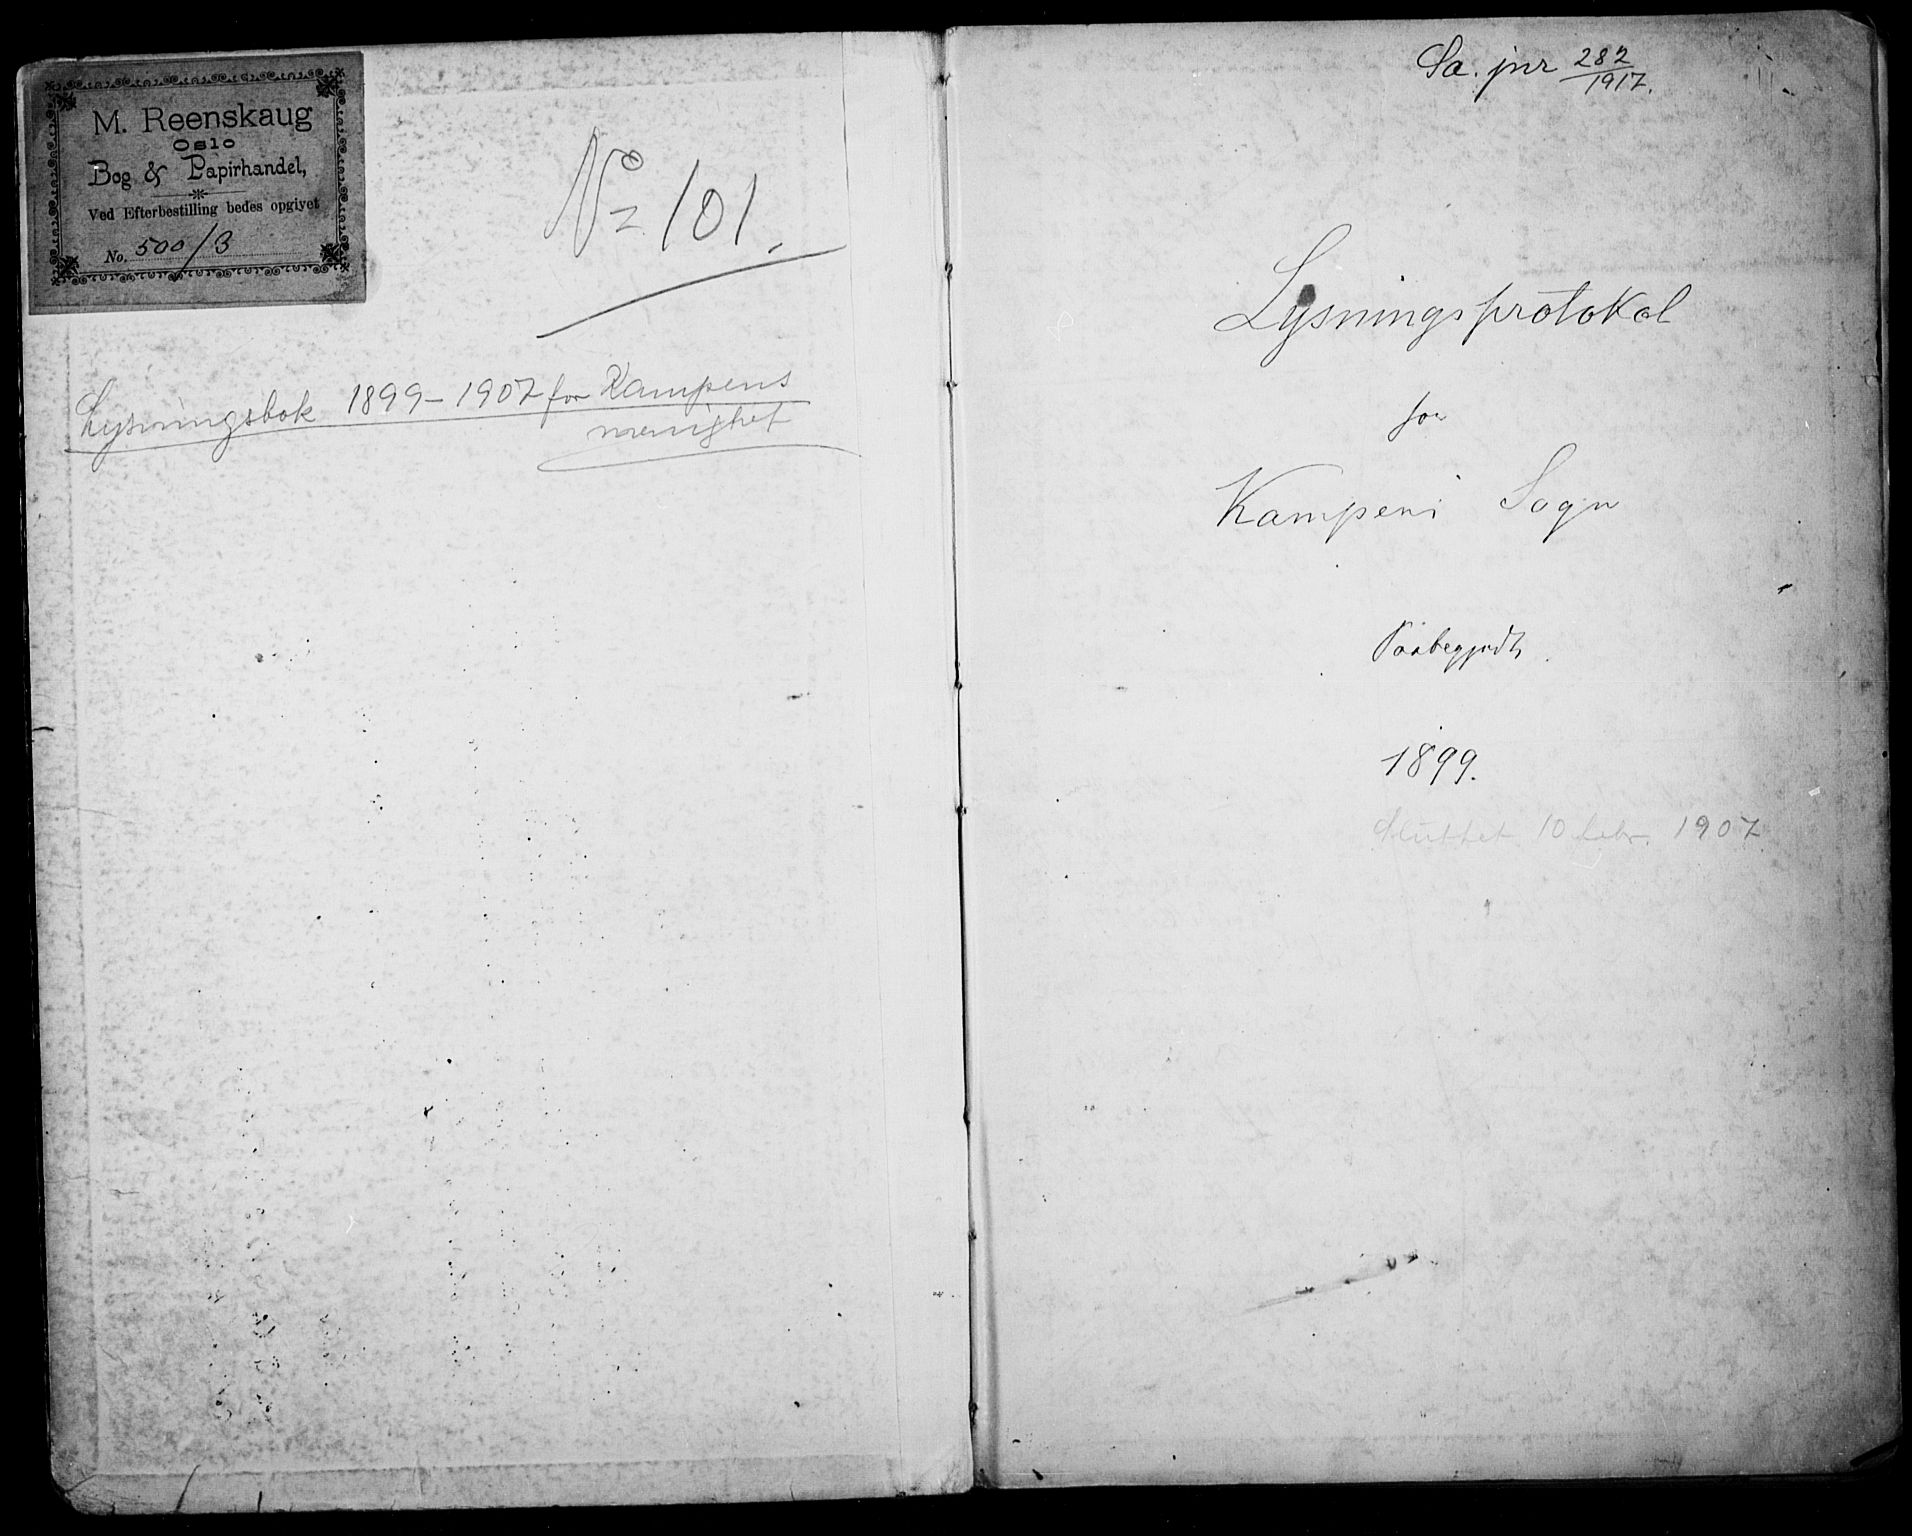 M. Reenskaug
Oslo
Bog & Papirhandel,
Ved Efterbestilling bedes opgivet
No. 500/3
No 101.
Lysningsbok 1899-1907 for Kampens
menighet
Sa. jnr 282/1917.
Lysningsprotokol
for
Kampens Sogn
Paabegyndt
1899.
Sluttet 10 febr. 1907.